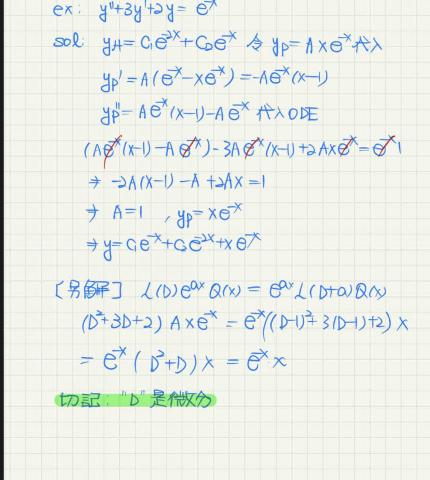 ex: y"+3y'+2y = e^-x
sol: yH = C1e^-2x + C2e^-x 令 yp = Axe^-x代入
yp' = A(e^-x - xe^-x) = -Ae^-x(x-1)
yp" = Ae^-x(x-1) - Ae^-x 代入ODE
(Ae^-x(x-1) - Ae^-x) - 3Ae^-x(x-1) + 2Axe^-x = e^-x 1
⇒ -2A(x-1) - A + 2Ax = 1
⇒ A=1 , yp = xe^-x
⇒ y = C1e^-x + C2e^-2x + xe^-x
[另解] L(D)e^ax Q(x) = e^ax L(D+a)Q(x)
(D²+3D+2) Axe^-x = e^-x((D-1)²+3(D-1)+2) x
= e^-x (D²+D) x = e^-x x
切記: "D"是微分